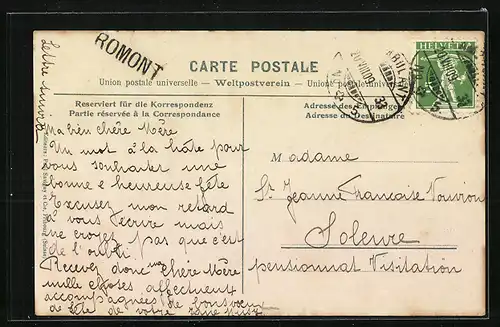 ROMONT
CARTE POSTALE
Union postale universelle – Weltpostverein – Unione postale universale
HELVETIA
5
Reserviert für die Korrespondenz
Partie réservée à la Correspondance
Adresse des Empfängers
Adresse du Destinataire
Lettre suivra
Ma bien chère Mère
Un mot à la hâte pour
vous souhaiter une
bonne e heureuse fête
Excusez mon retard
à vous écrire mais
ne croyez pas que c'est
de l'oubli
Recevez donc ma chère Mère
mille choses affectueuses
accompagnées de bons vœux
de fête de votre
Madame
St Jeanne Françoise
Soleure
pensionnat Visitation